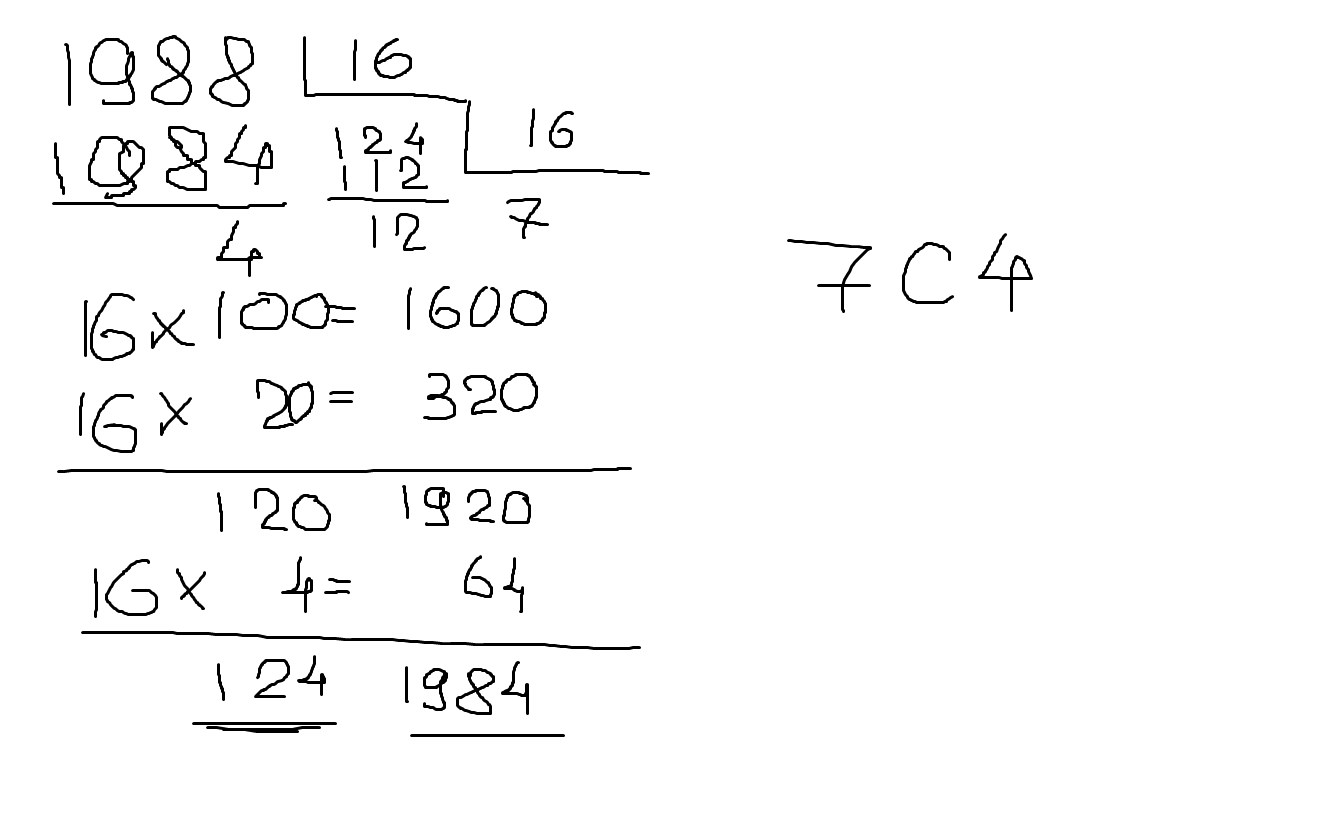 1988 16
1984 124 16
112
4 12 7
7C4
16 × 100 = 1600
16 × 20 = 320
120 1920
16 × 4 = 64
124 1984